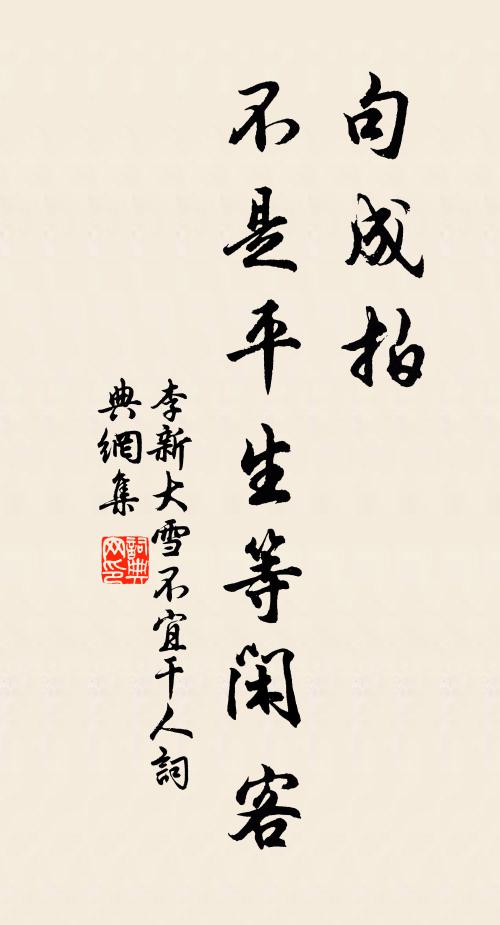 句成拍
不是平生等閑客
李新大雪不宜干人詞
典網集
詞典
网印